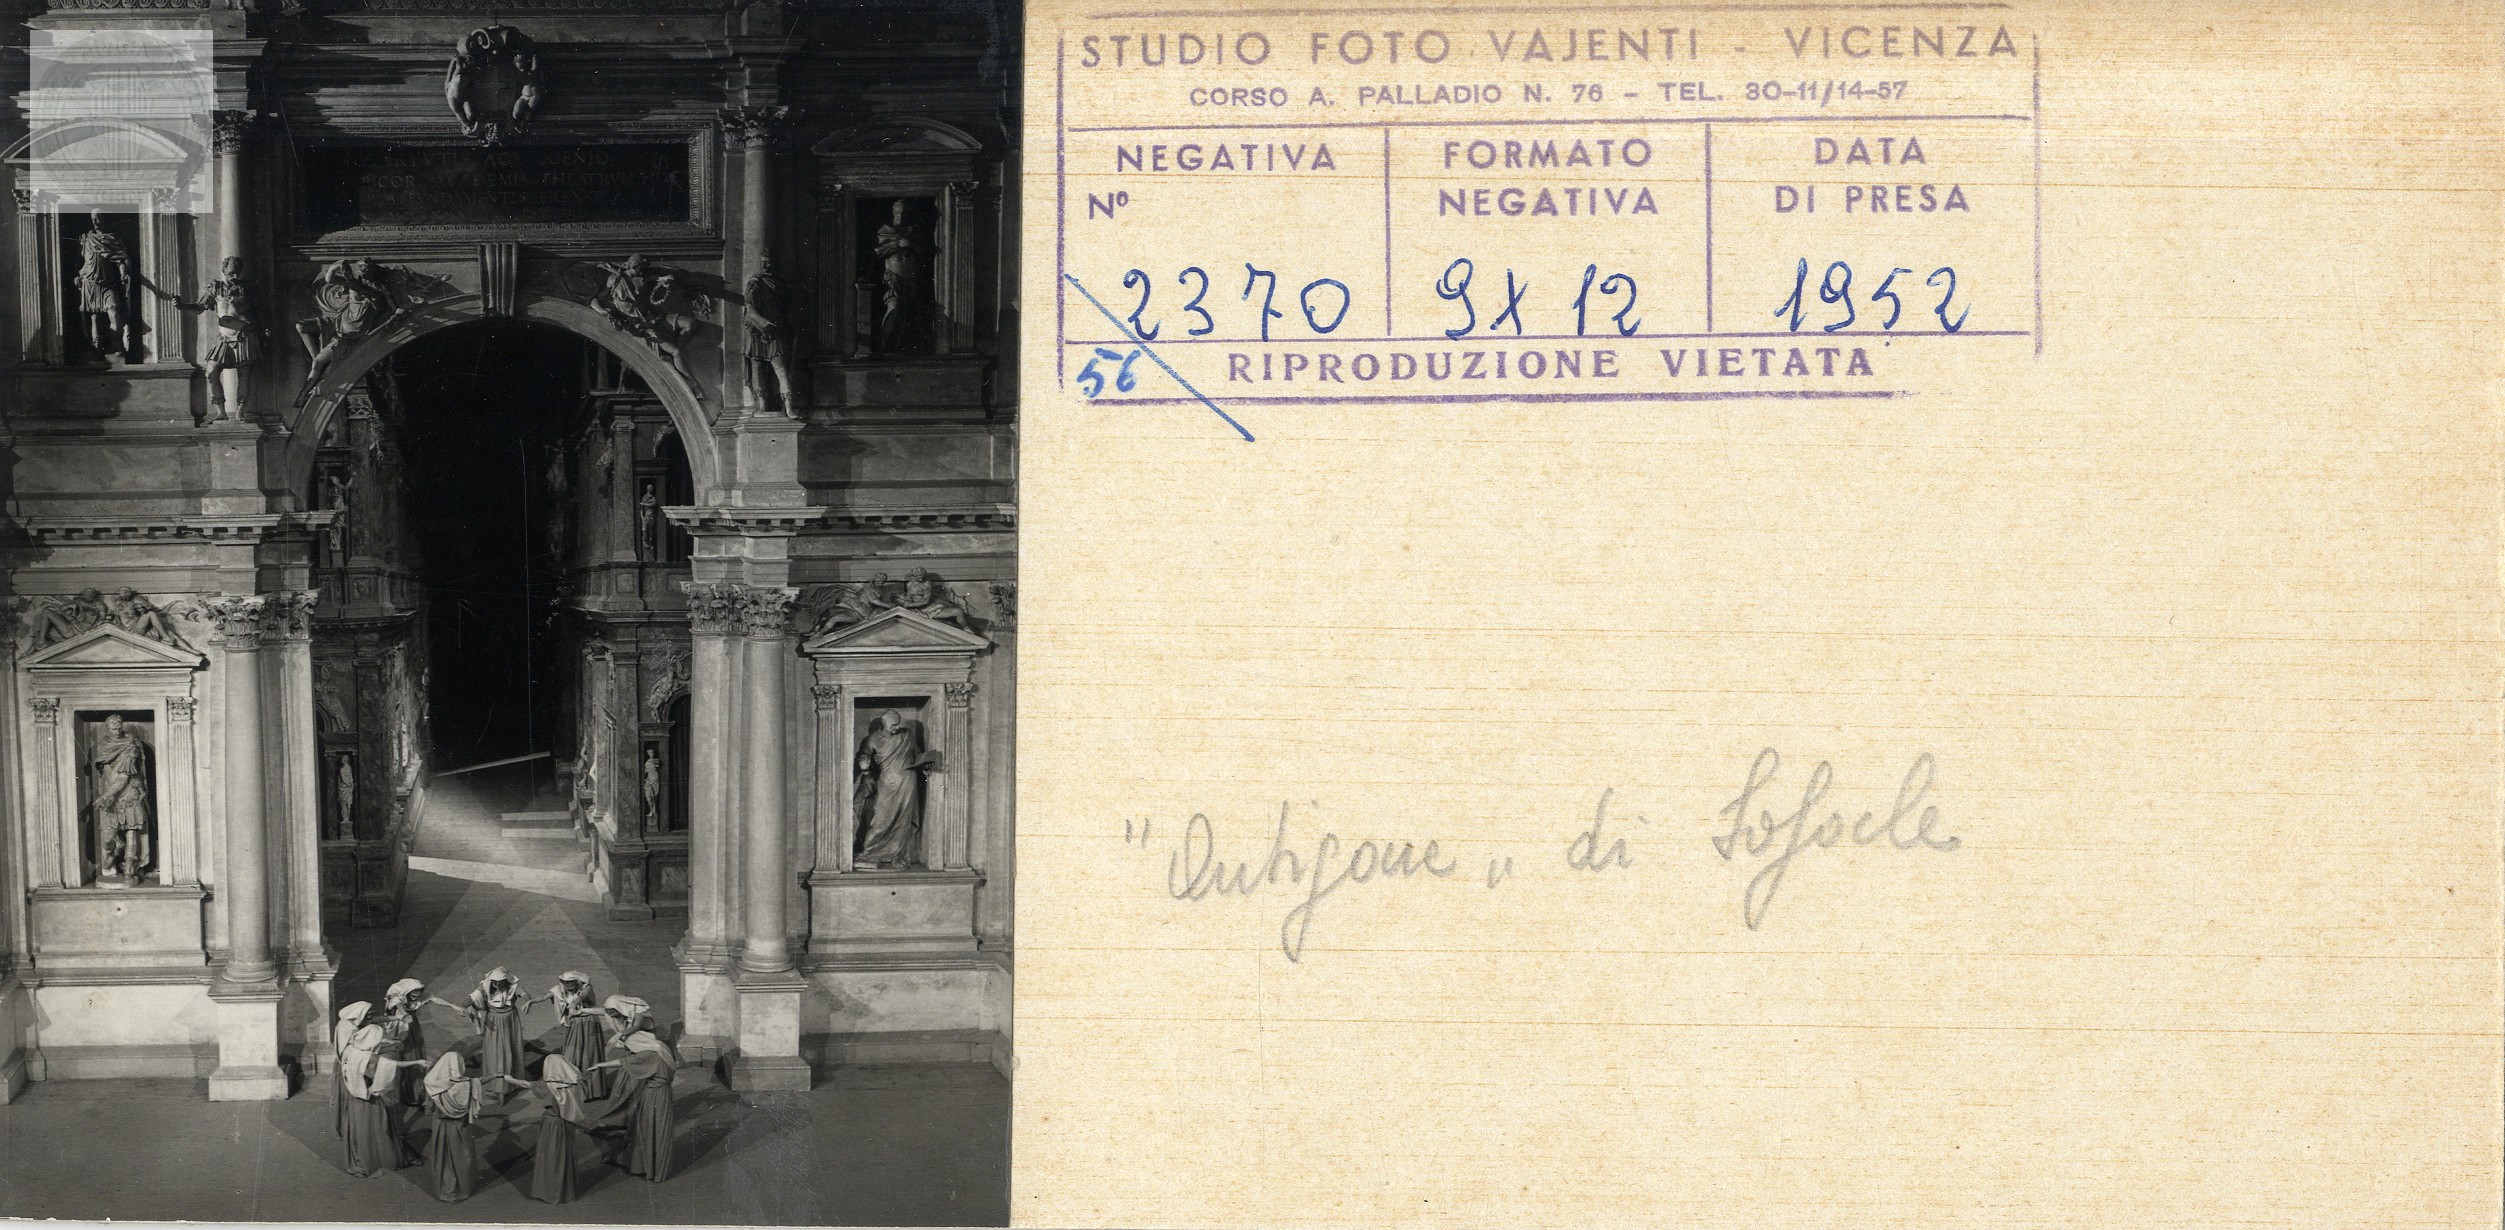 VIRTVTI AC GENIO
THEATRVM
STUDIO FOTO VAJENTI - VICENZA
CORSO A. PALLADIO N. 76 - TEL. 30-11/14-57
NEGATIVA
Nº
FORMATO
NEGATIVA
DATA
DI PRESA
2370
9x12
1952
56
RIPRODUZIONE VIETATA
"Antigone" di Sofocle